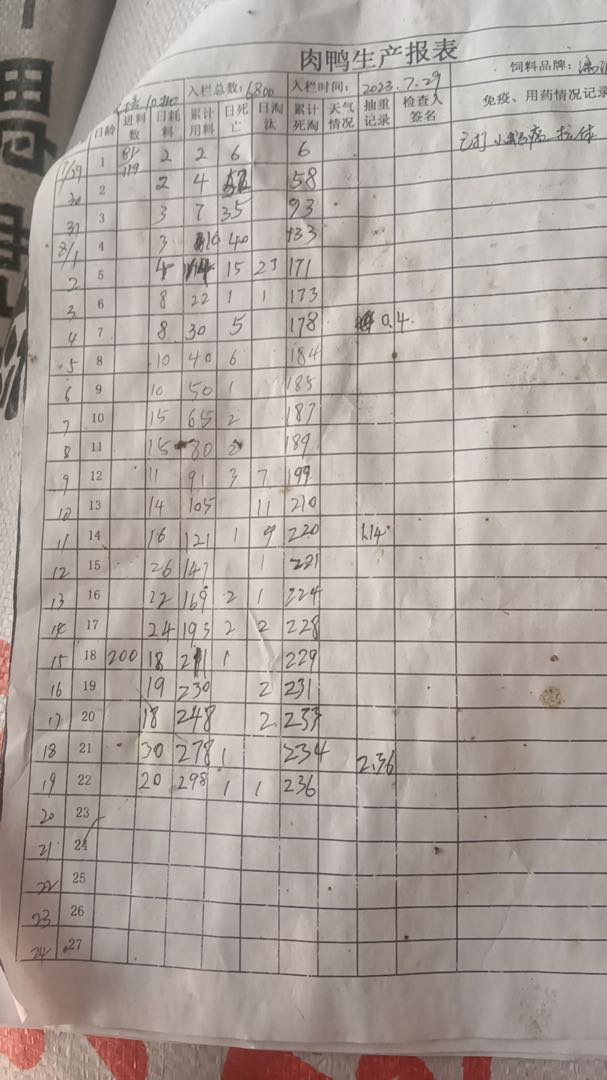 肉鸭生产报表
入栏总数：6800 入栏时间：2023.7.29 饲料品牌：
日龄 进料数 日耗料 累计用料 日死亡 日淘汰 累计死淘 天气情况 抽重记录 检查人签名 免疫、用药情况记录
7/29 1 119 2 2 6 6
30 2 2 4 58
31 3 3 7 35 93
8/1 4 3 10 40 133
2 5 4 14 15 23 171
3 6 8 22 1 1 173
4 7 8 30 5 178 0.4
5 8 10 40 6 184
6 9 10 50 1 185
7 10 15 65 2 187
8 11 15 80 2 189
9 12 11 91 3 7 199
10 13 14 105 11 210
11 14 16 121 1 9 220 1.14
12 15 26 147 1 221
13 16 22 169 2 1 224
14 17 24 193 2 2 228
15 18 200 18 211 1 229
16 19 19 230 2 231
17 20 18 248 2 233
18 21 30 278 1 234 2.36
19 22 20 298 1 1 236
20 23
21 24
22 25
23 26
24 27